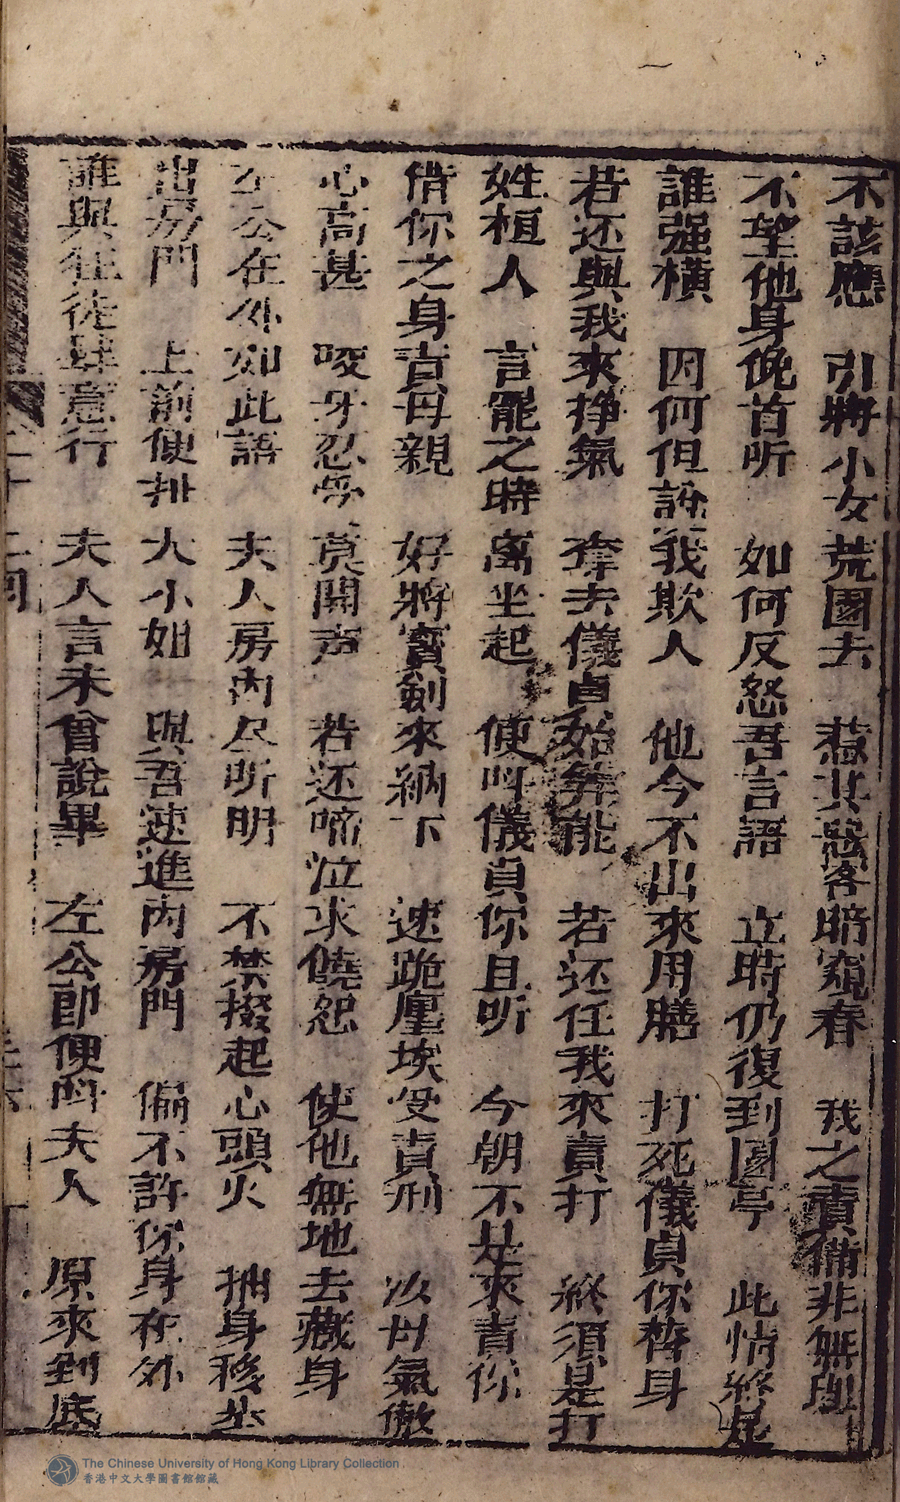 不該應　引將小女荒園去　惹其惡客暗窺春　我之責備非無理
不望他身俛首听　如何反怒吾言語　立時仍復到園亭　此情終是
誰强橫　因何但説我欺人　他今不出來用膳　打死儀貞你替身
若还與我來掙氣　奪去儀貞始算能　若还任我來責打　終須是打
姓桓人　言罷之時离坐起　便呌儀貞你且听　今朝不是來責你
借你之身責母親　好將寳劍來納下　速跪塵埃受責刑　汝母氣傲
心高甚　咬牙忍受莫開声　若还啼泣求饒恕　使他無地去藏身
左公在外如此語　夫人房內尽听明　不禁掇起心頭火　抽身移步
出房門　上前便扯大小姐　與吾速進內房門　偏不許你身在外
誰與狂徒肆意行　夫人言未曾說畢　左公即便呌夫人　原來到底
The Chinese University of Hong Kong Library Collection
香港中文大學圖書館館藏